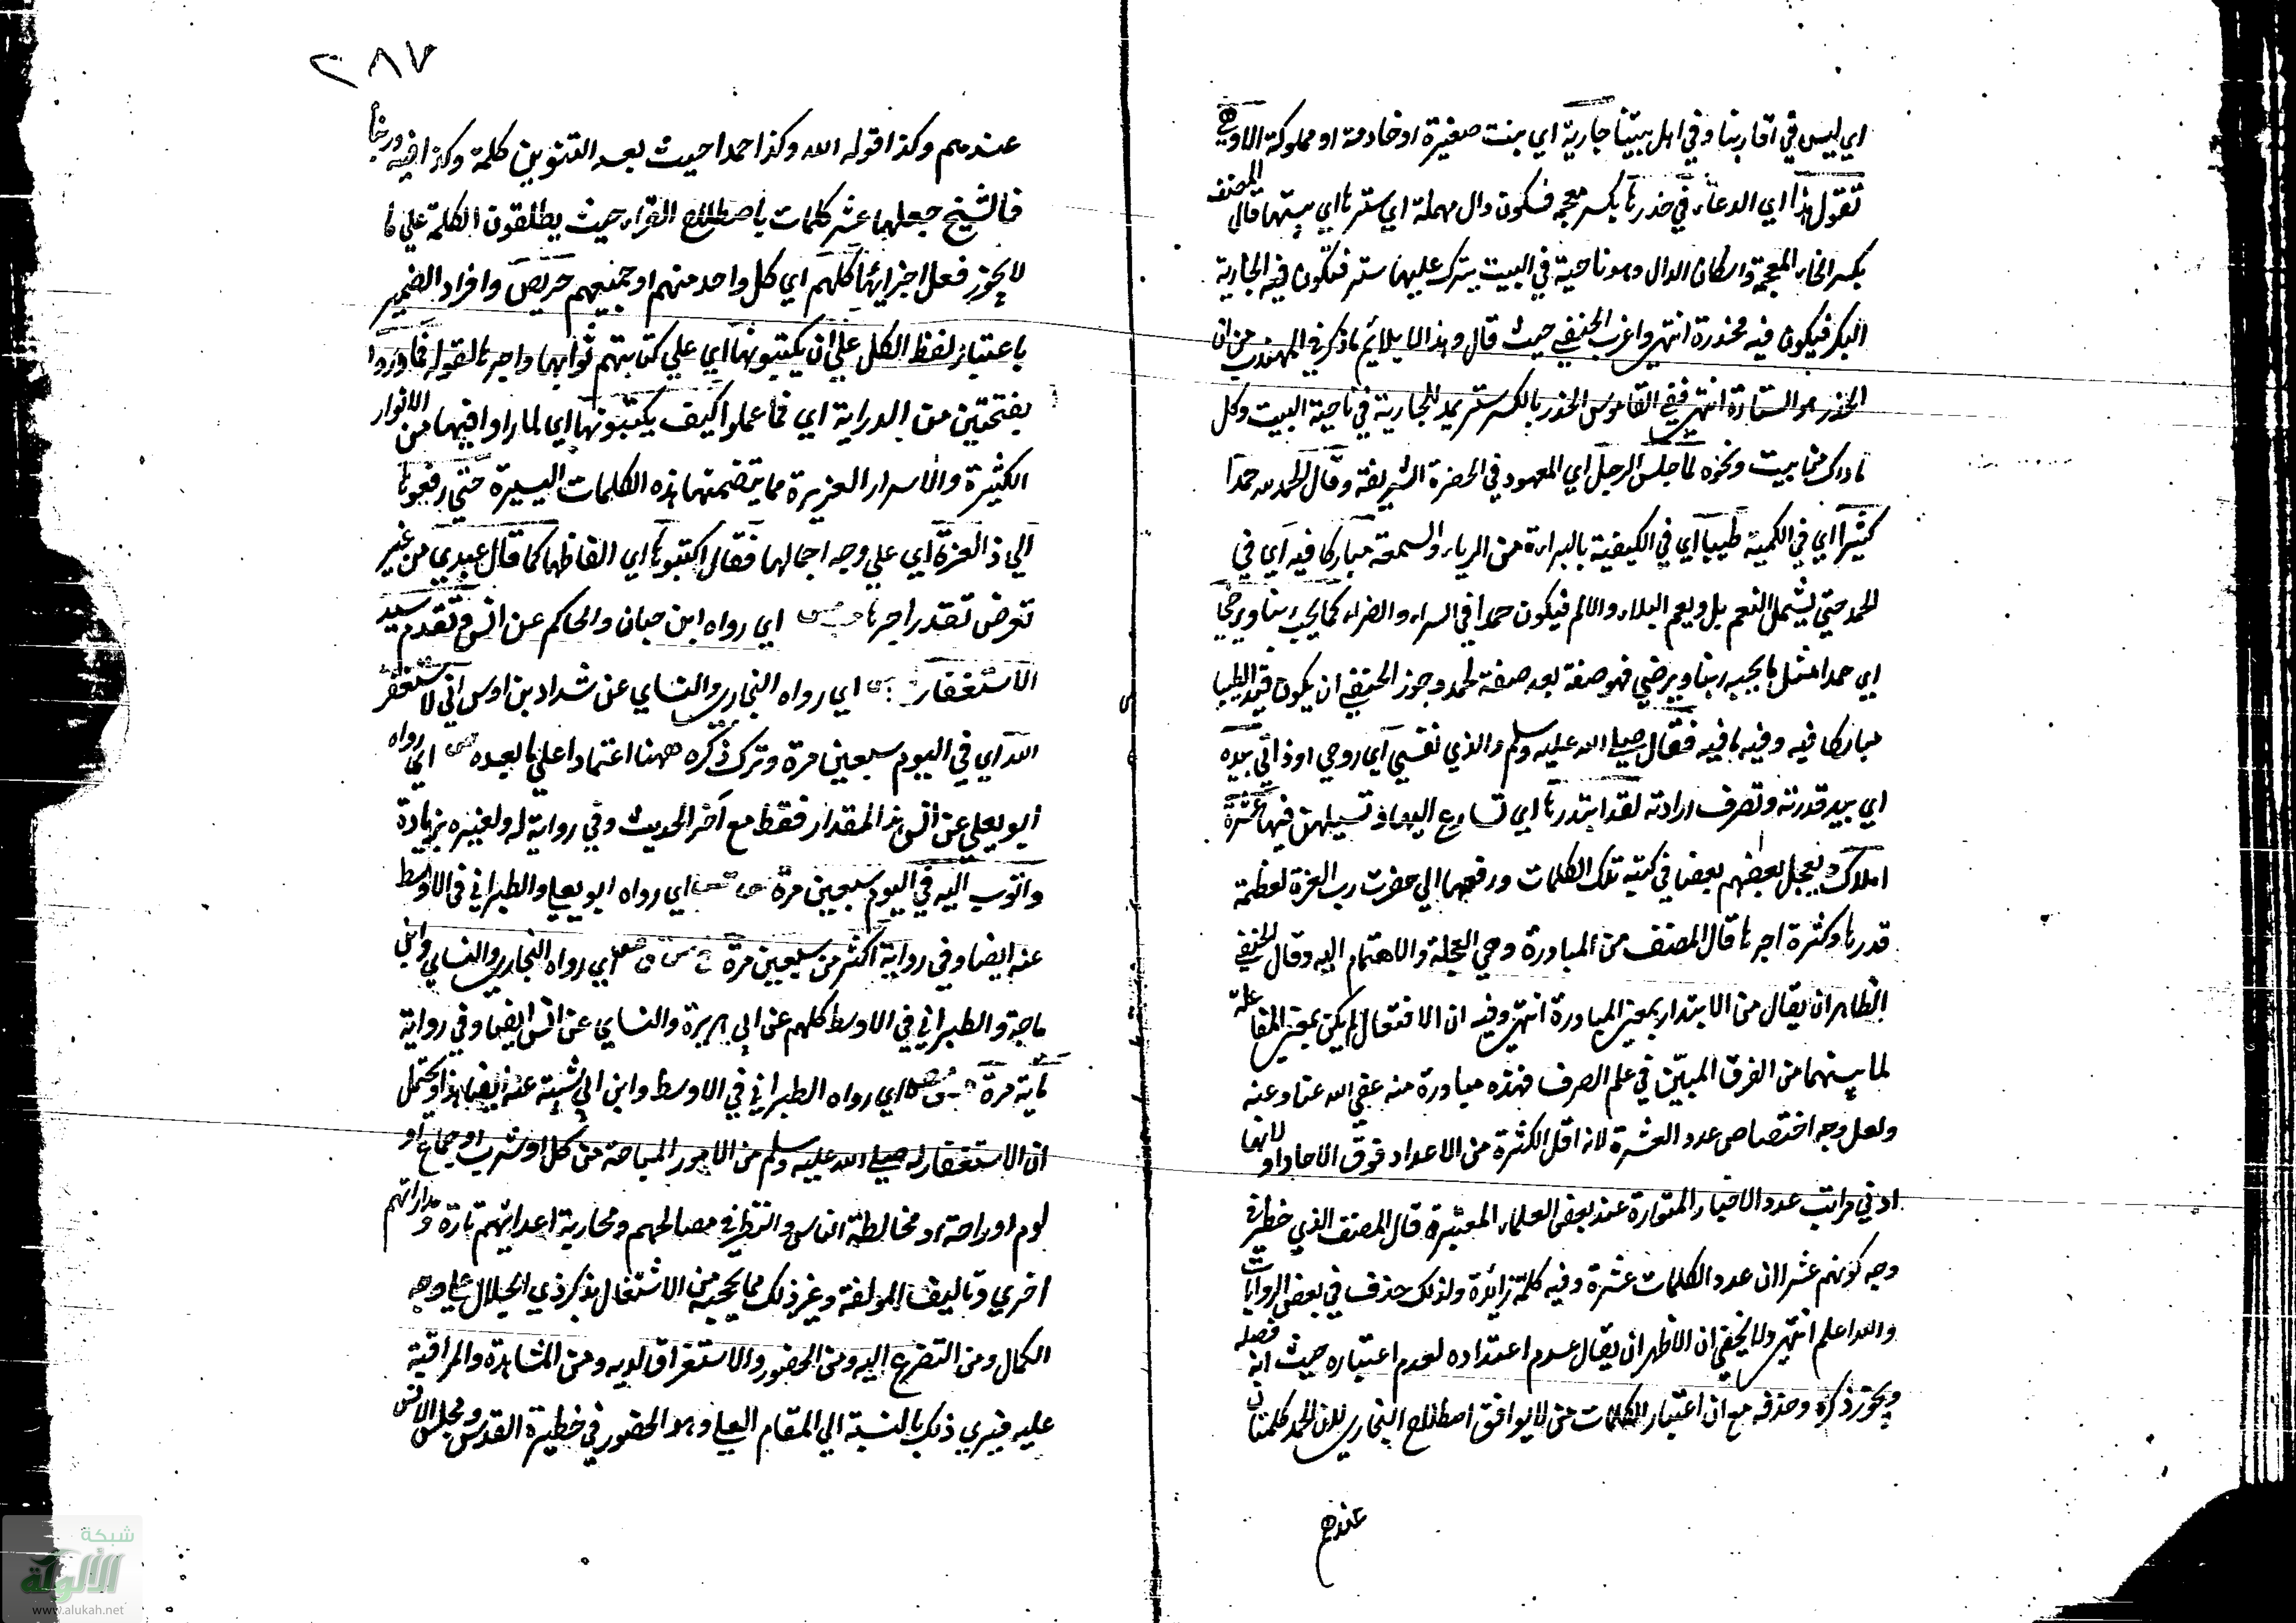 اي ليس في اقاربنا وفي اهل بيتنا جارية اي بنت صغيرة او خادمة او مملوكة الا وهي
تقول هذا اي الدعاء في خدرها بكسر معجمة فسكون دال مهملة اي سترها اي بيتها قال المصنف
بكسر الخاء المعجمة واسكان الدال وهو ناحية في البيت يترك عليها ستر فتكون فيه الجارية
البكر فيكون فيه مخدرة انتهى واغرب الحنفي حيث قال وهذا لا يلائم ما ذكر في المهذب من ان
الخدر هو الستارة انتهى ففي القاموس الخدر بالكسر ستر يمد للجارية في ناحية البيت وكل
ما واراك من بيت ونحوه لما جلس الرجل اي المعهود في الحضرة الشريفة وقال الحمد لله حمدا
كثيرا اي في الكمية طيبا اي في الكيفية بالبراءة من الرياء والسمعة مباركا فيه اي في
الحمد حتى يشمل النعم بل ويعم البلاء والالم فيكون حمدا في السراء والضراء كما يحب ربنا ويرضى
اي حمدا مثل ما يحبه ربنا ويرضى فهو صفة بعد صفة لحمد وجوز الحنفي ان يكون قيد الطيبا
مباركا فيه وفيه ما فيه فقال صلى الله عليه وسلم والذي نفسي اي روحي او ذاتي بيده
اي بيد قدرته وتصرف ارادته لقد ابتدرها اي تسارع اليها في تسبيلهن فيها عشرة
املاك ويعجل بعضهم بعضا في كتبة تلك الكلمات ورفعها الى حضرت رب العزة لعظمة
قدرها وكثرة اجرها قال المصنف من المبادرة وهي العجلة والاهتمام اليه وقال الحنفي
الظاهر ان يقال من الابتدار بمعنى المبادرة انتهى وفيه ان الافتعال لم يكن بمعنى المفاعلة
لما بينهما من الفرق المبين في علم الصرف فهذه مبادرة منه عفى الله عنا وعنه
ولعل وجه اختصاص عدد العشرة لانه اقل الكثرة من الاعداد فوق الاحاد او لانها
ادنى مراتب عدد الاخبار المتواترة عند بعض العلماء المعتبرة قال المصنف الذي خطر في
وجه كونهم عشرا ان عدد الكلمات عشرة وفيه كلمة زائدة ولذلك حذف في بعض الروايات
والله اعلم انتهى ولا يخفى ان الاظهر ان يقال عدم اعتداده لعدم اعتباره حيث انه فصله
ويجوز ذكره وحذفه مع ان اعتبار الكلمات من لا يوافق اصطلاح البخاري لان الحمد كلمتان
عندهم
٢٨٧
عندهم وكذا قوله الله وكذا حمدا حيث بعد التنوين كلمة وكذا فيه وربنا
فالشيخ جعلها عشر كلمات باصطلاح القراء حيث يطلقون الكلمة على ما
لا يجوز فعل اجزائها كلهم اي كل واحد منهم او جميعهم حريص وافراد الضمير
باعتبار لفظ الكل على ان يكتبونها اي على كتابتهم ثوابها واجرها لقوله فما دروا
بفتحتين من الدراية اي فما علموا كيف يكتبونها اي لما راوا فيها من الانوار
الكثيرة والاسرار العزيرة مما يتضمنها هذه الكلمات اليسيرة حتى رفعوها
الى ذ العزة اي على وجه اجمالها فقال اكتبوها اي الفاظها كما قال عبدي من غير
تعرض تقدر اجرها اي رواه ابن حبان والحاكم عن انس وتقدم سيد
الاستغفار اي رواه البخاري والنساي عن شداد بن اوس اني لاستغفر
الله اي في اليوم سبعين مرة وترك ذكره ههنا اعتمادا على ما بعده اي رواه
ابو يعلى عن انس هذا المقدار فقط مع آخر الحديث وفي رواية له ولغيره بزيادة
واتوب اليه في اليوم سبعين مرة اي رواه ابو يعلى والطبراني في الاوسط
عنه ايضا وفي رواية اكثر من سبعين مرة خ س ق طس اي رواه البخاري والنساي وابن
ماجة والطبراني في الاوسط كلهم عن ابي هريرة والنساي عن انس ايضا وفي رواية
ماية مرة اي رواه الطبراني في الاوسط وابن ابي شيبة عنه ايضا هذا ويحتمل
ان الاستغفار له صلى الله عليه وسلم من الامور المباحة من كل او شرب او جماع او
نوم او راحة او مخالطة الناس والنظر في مصالحهم ومحاربة اعدائهم تارة ومداراتهم
اخرى وتاليف المولفة وغير ذلك مما يحجبه من الاشتغال بذكر ذي الجلال على وجه
الكمال ومن التضرع اليه ومن الحضور والاستغراق لديه ومن المشاهدة والمراقبة
عليه فيرى ذلك بالنسبة الى المقام العلي وهو الحضور في خطيرة القدس ومجلس الانس
شبكة
الألوكة
www.alukah.net